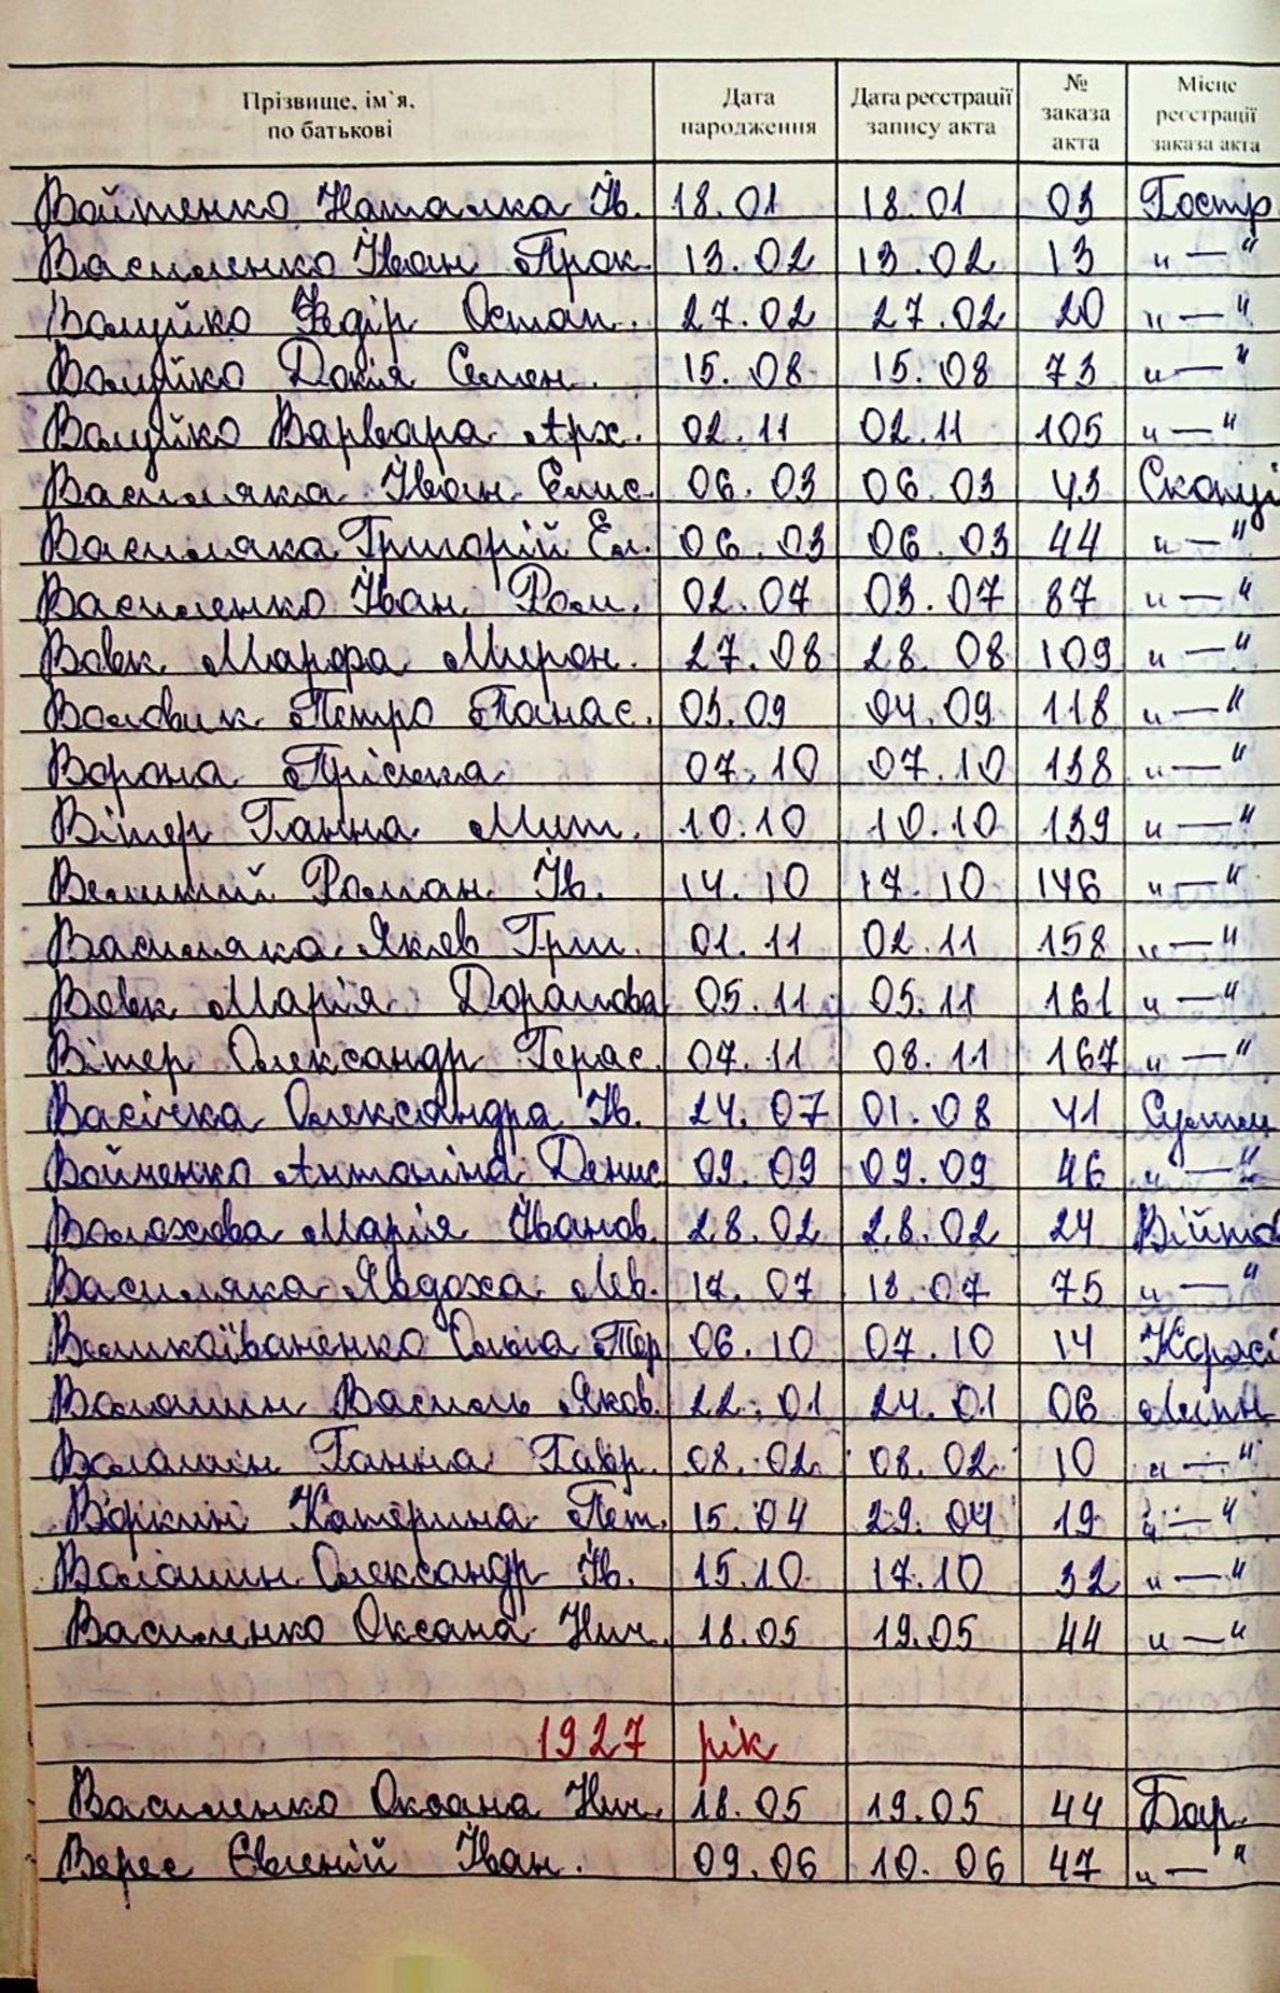 Прізвище, ім`я, по батькові Дата народження Дата реєстрації запису акта № заказа акта Місце реєстрації заказа акта
Войтенко Наталка Ів. 18.01 18.01 03 Гостр
Василенко Іван Прок. 13.02 13.02 13 "—"
Валуйко Федір Остап. 27.02 27.02 20 "—"
Валуйко Докія Семен. 15.08 15.08 73 "—"
Валуйко Варвара Арх. 02.11 02.11 105 "—"
Василяка Іван Елис. 06.03 06.03 43 Скопці
Василяка Григорій Ел. 06.03 06.03 44 "—"
Василенко Іван Ром. 02.07 03.07 87 "—"
Вовк Марфа Мирон. 27.08 28.08 109 "—"
Воловик Петро Панас. 03.09 04.09 118 "—"
Ворона Пріська 07.10 07.10 138 "—"
Вітер Ганна Мит. 10.10 10.10 139 "—"
Великий Роман Ів. 14.10 17.10 146 "—"
Василяка Яков Гри. 01.11 02.11 158 "—"
Вовк Марія 05.11 05.11 161 "—"
Вітер Олександр Герас. 07.11 08.11 167 "—"
Васічка Олександра Ів. 24.07 01.08 41 
Войченко Антоніна Денис 09.09 09.09 46 "—"
Волохова Марія Іванов. 28.02 28.02 24 Війтов
Василяка Явдоха Лев. 17.07 18.07 75 "—"
Великоіваненко Ольга 06.10 07.10 14 
Волошин Василь Яков. 22.01 24.01 06 Липн
Волошин Ганна Гавр. 08.02 08.02 10 "—"
Воркин Катерина Пет. 15.04 29.04 19 "—"
Волошин Олександр Ів. 15.10 17.10 32 "—"
Василенко Оксана Нич. 18.05 19.05 44 "—"
1927 рік
Василенко Оксана Нич. 18.05 19.05 44 Бар.
Верес Євгеній Іван. 09.06 10.06 47 "—"